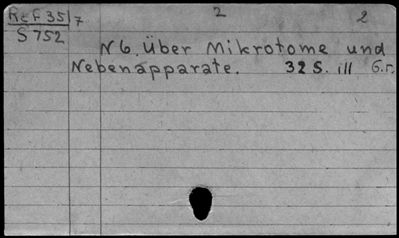 Ref 35/7 2 2
S 752
N 6. Über Mikrotome und
Nebenapparate. 32 S. ill G.r.